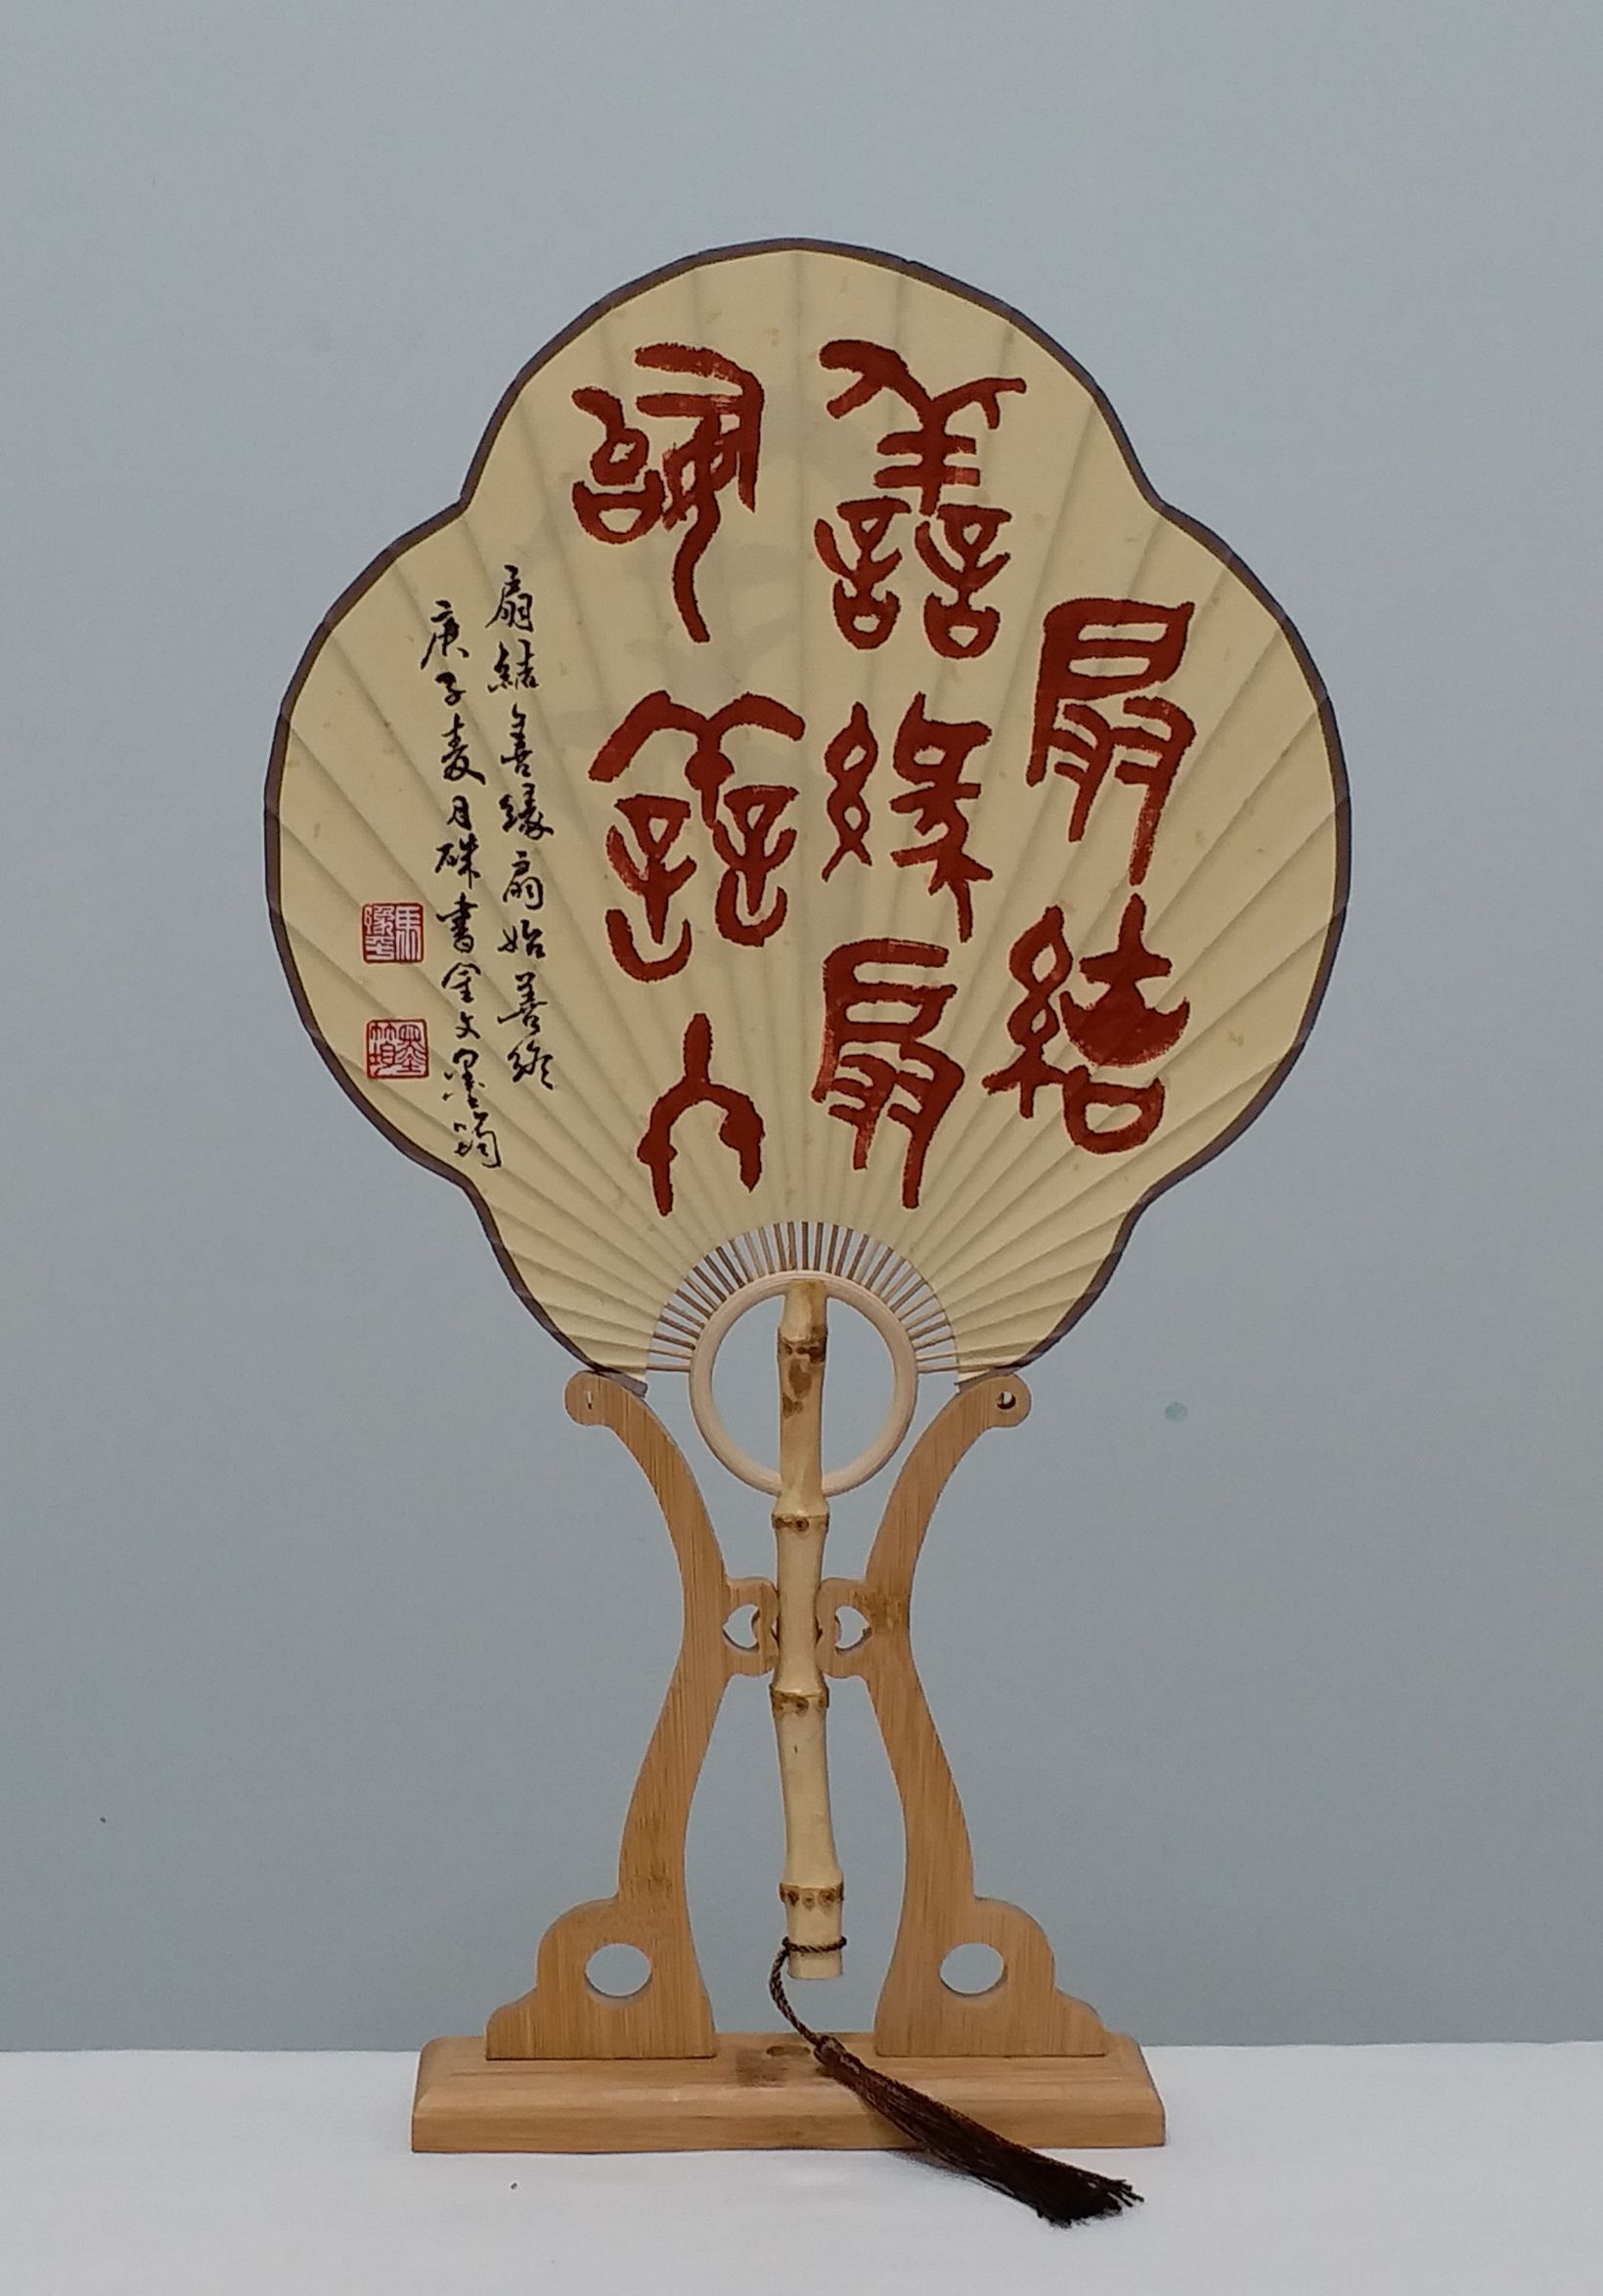 扇結
善緣扇
始善終
扇結善緣扇始善終
庚子麦月硃書金文墨筠
墨筠